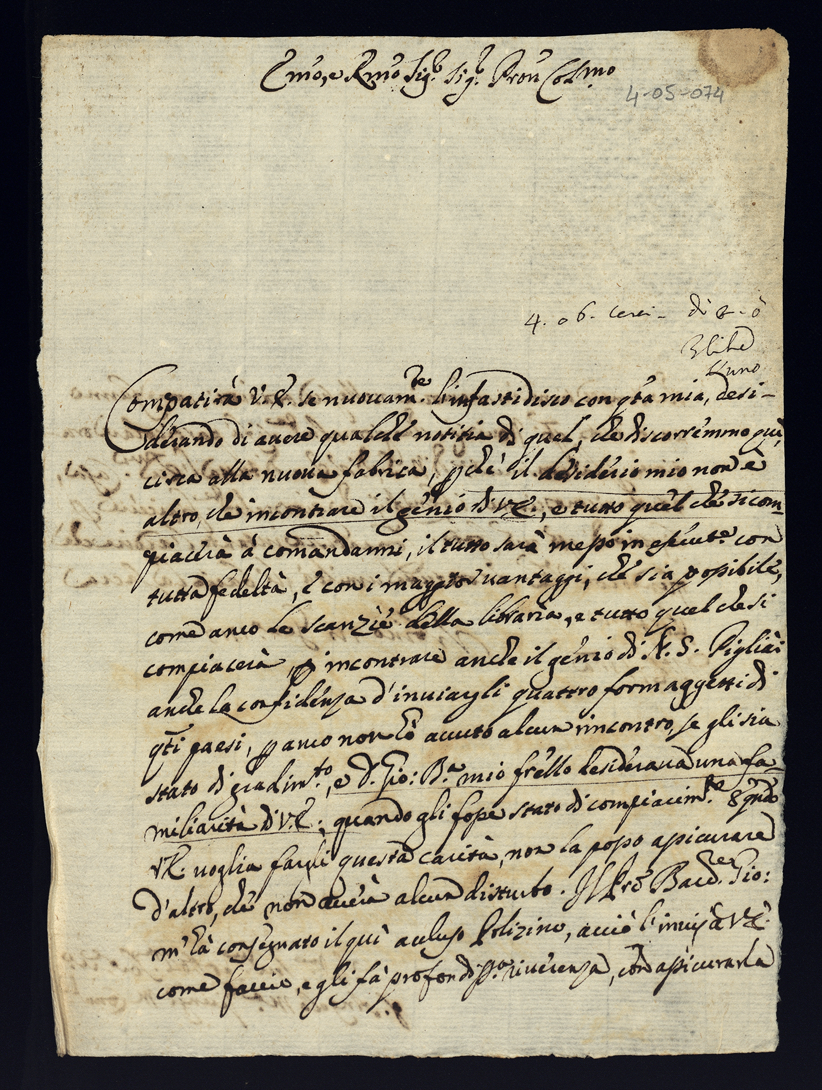 Emo, e Rmo Sig.e Sig.e Pron Colmo
4-05-074
4. 06.
Compatirà V.E. se nuovam.te l'infastidisco con qta mia, desi-
derando di avere qualche notitia di quel, che discorremmo qui,
circa alla nuova fabrica, pche il desiderio mio non è
altro, che incontrare il genio di V.E., e tutto quel che si com-
piacerà à comandarmi, il tutto sarà messo in esecut.e con
tutta fedeltà, e con i maggiori vantaggi, che sia possibile,
come anco le scanzie della libraria, e tutto quel che si
compiacerà, p incontrare anche il genio di N. S. Pigliai
anche la confidenza d'inviargli quattro formaggetti di
qti paesi, p anco non hò avuto alcun rincontro, se gli sia
stato di gradim.to, e D. Gio: Ba. mio frello desiderava una fa-
miliarità di V.E., quando gli fosse stato di compiacim.to
VE voglia farli questa carità, non la posso assicurare
d'altro, che non averà alcun disturbo. Il Pre Gio:
m'hà consegnato il quì acluso Polizino, acciò l'invij à V.E.
come faccio, e gli fà profondiss.a riverenza, con assicurarla